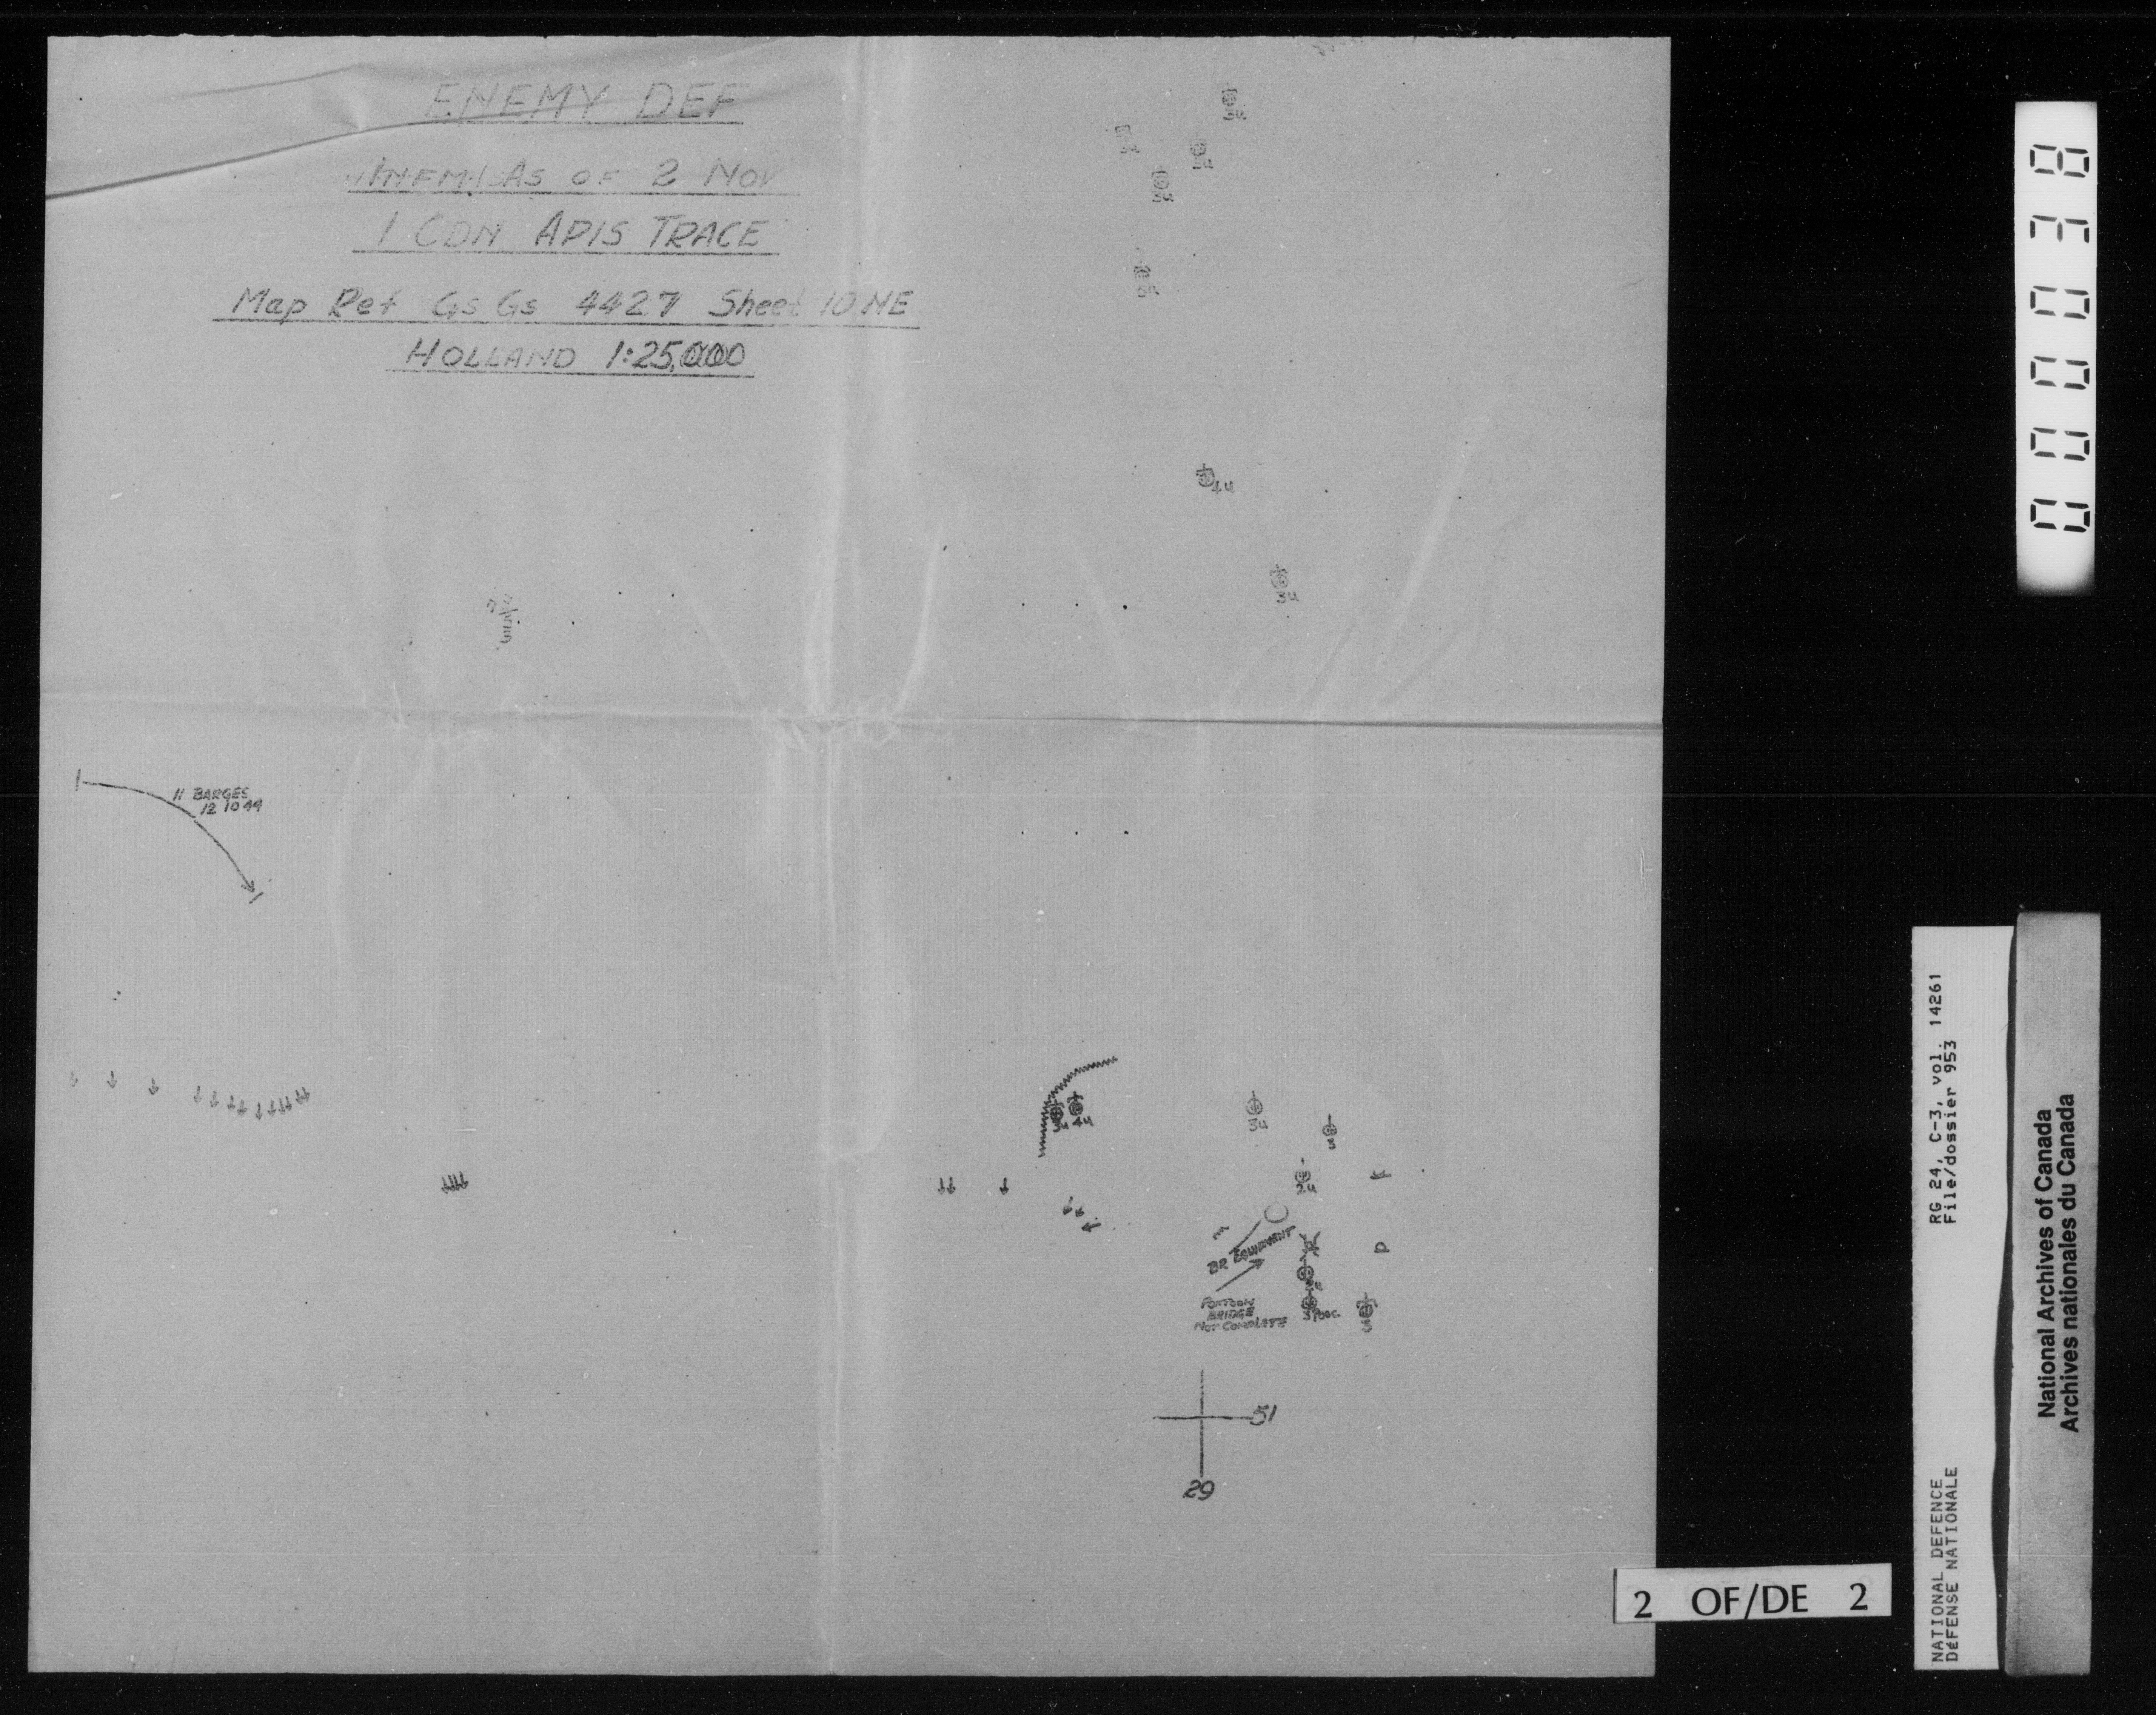 ENEMY DEF
As OF 2 Nov
1 CDN APIS TRACE
Map Ref Gs Gs 4427 Sheet 10 NE
HOLLAND 1:25,000
3u
4u
3u
11 BARGES
12 10 44
3u 4u
3u
3u
2u
BR EQUIPMENT
PONTOON
BRIDGE
NOT COMPLETE
D
51
29
000038
RG 24, C-3, vol. 14261
File/dossier 953
NATIONAL DEFENCE
DéFENSE NATIONALE
National Archives of Canada
Archives nationales du Canada
2 OF/DE 2